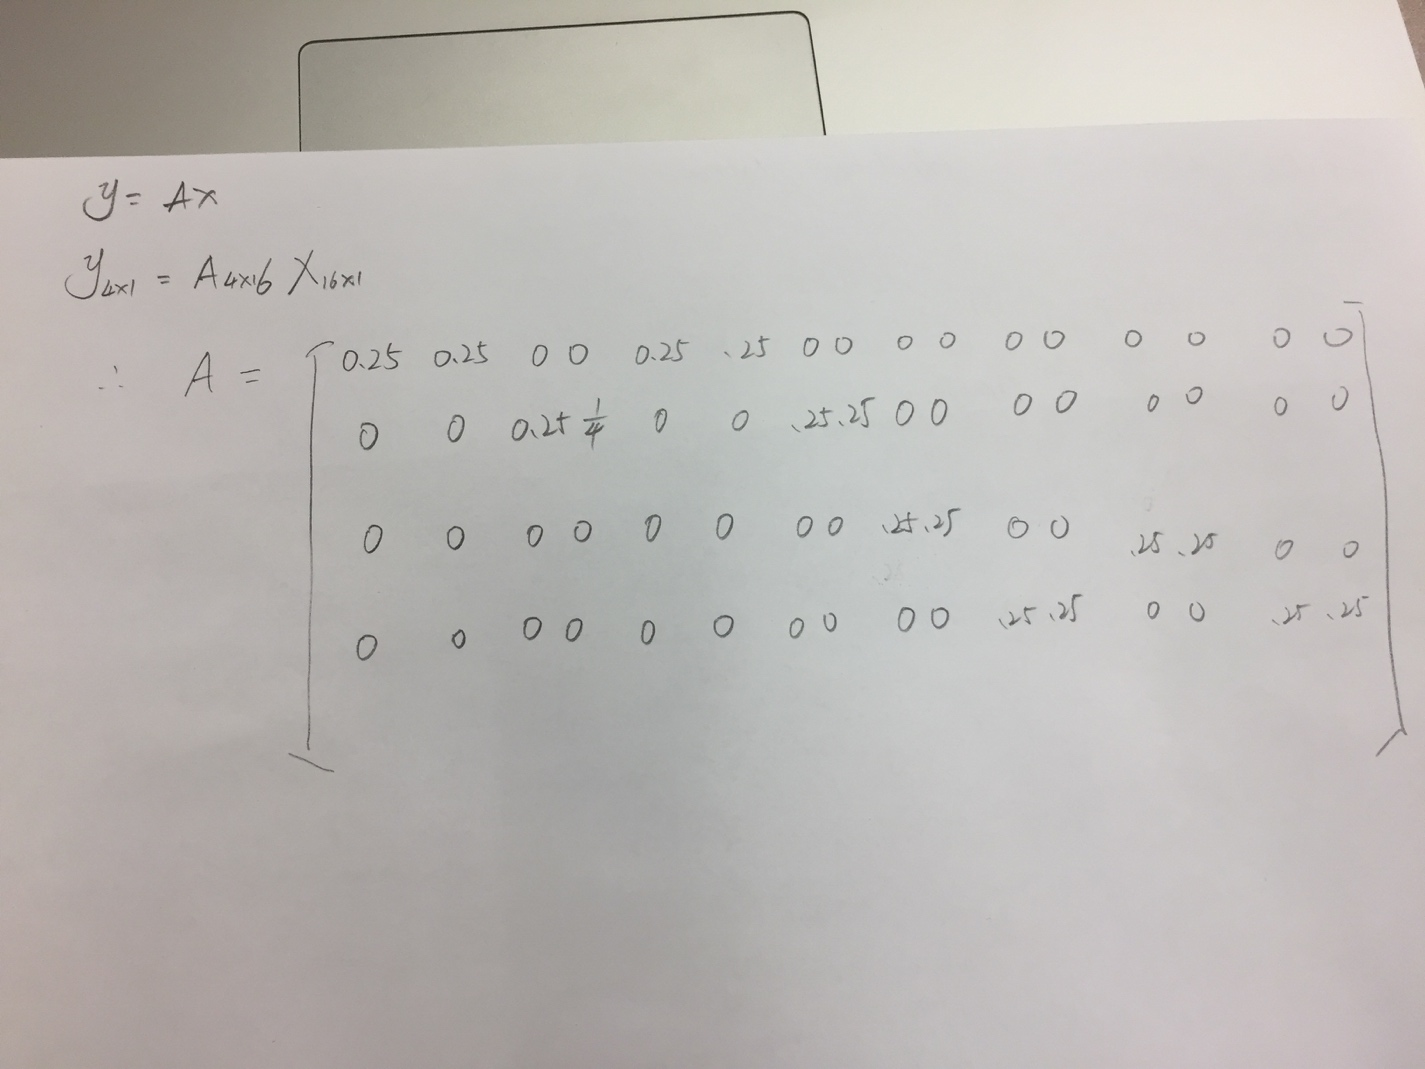 y = Ax
y4x1 = A4x16 X16x1
∴ A = [ 0.25 0.25 0 0 0.25 .25 0 0 0 0 0 0 0 0 0 0
0 0 0.25 1/4 0 0 .25 .25 0 0 0 0 0 0 0 0
0 0 0 0 0 0 0 0 .25 .25 0 0 .25 .25 0 0
0 0 0 0 0 0 0 0 0 0 .25 .25 0 0 .25 .25 ]